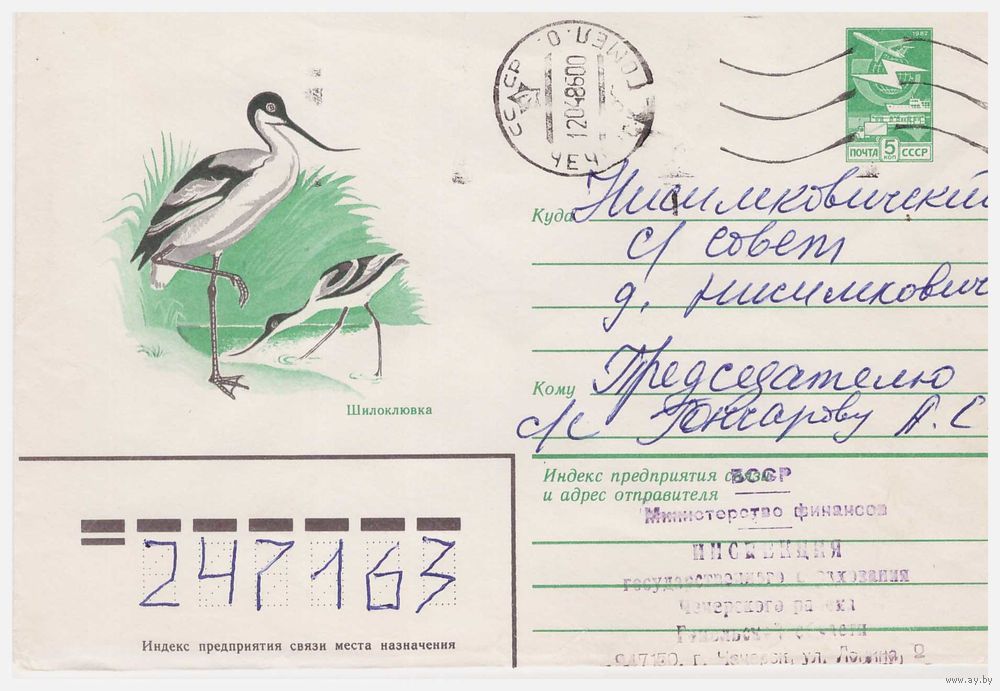 1982
ПОЧТА 5 КОП СССР
БССР ГОМЕЛ. О.
12048600
ЧЕЧ
Куда Нисимковичский
с/совет
д. Нисимкович
Кому Председателю
с/с Гончарову А. С
Шилоклювка
Индекс предприятия связи
и адрес отправителя
БССР
Министерство финансов
ИНСПЕКЦИЯ
государственного страхования
Чечерского района
Гомельской области
247150. г. Чечерск, ул. Ленина, 2
247163
Индекс предприятия связи места назначения
www.ay.by